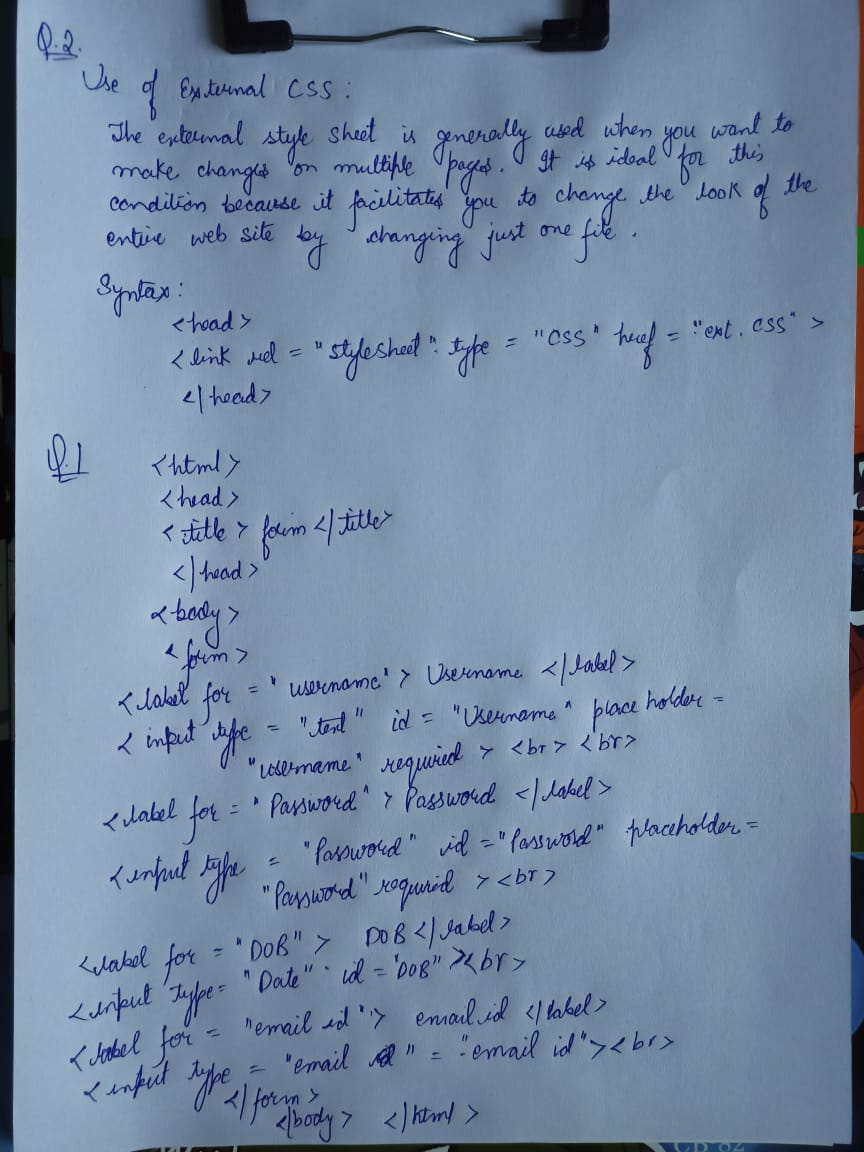 Q.2.
Use of External CSS :
The external style sheet is generally used when you want to
make changes on multiple pages. It is ideal for this
condition because it facilitates you to change the look of the
entire web site by changing just one file.
Syntax :
<head>
<link rel = "stylesheet" type = "CSS" href = "ext. css" >
</head>
Q.1
<html>
<head>
<title> form </title>
</head>
<body>
<form>
<label for = "username"> Username </label>
< input type = "text" id = "Username" place holder =
"username" required > <br> <br>
<label for = "Password" > Password </label>
<input type = "Password" id = "Password" placeholder =
"Password" required > <br>
<label for = "DOB" > DOB </label>
<input Type= "Date" id = "DOB" ><br>
<label for = "email id"> email id </label>
<input type = "email " = "email id"><br>
</form>
</body> </html>
CB 02